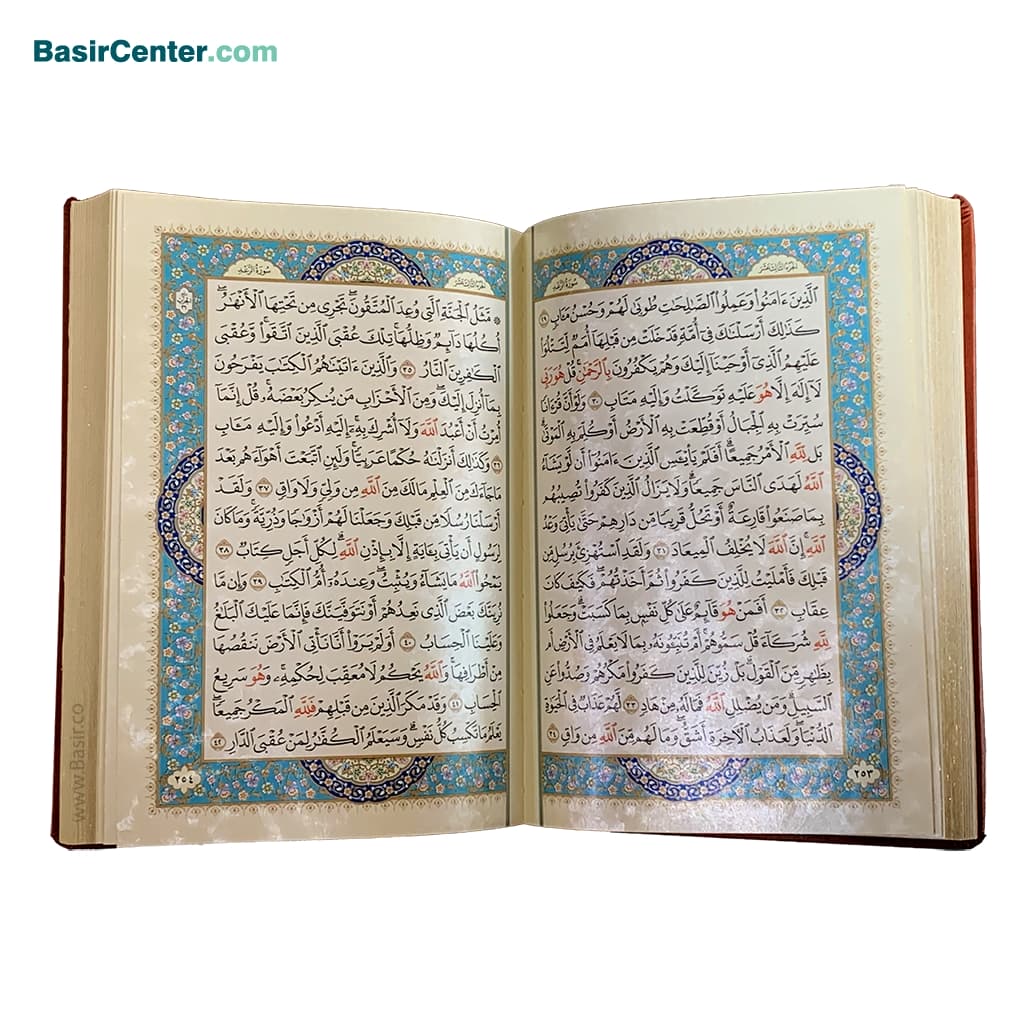 BasirCenter.com
سورة الرعد
الجزء الثالث عشر
الَّذِينَ ءَامَنُوا وَعَمِلُوا الصَّٰلِحَٰتِ طُوبَىٰ لَهُمْ وَحُسْنُ مَـَٔابٍ ٢٩
كَذَٰلِكَ أَرْسَلْنَٰكَ فِىٓ أُمَّةٍ قَدْ خَلَتْ مِن قَبْلِهَآ أُمَمٌ لِّتَتْلُوَا
عَلَيْهِمُ الَّذِىٓ أَوْحَيْنَآ إِلَيْكَ وَهُمْ يَكْفُرُونَ بِالرَّحْمَٰنِ قُلْ هُوَ رَبِّى
لَآ إِلَٰهَ إِلَّا هُوَ عَلَيْهِ تَوَكَّلْتُ وَإِلَيْهِ مَتَابِ ٣٠ وَلَوْ أَنَّ قُرْءَانًا
سُيِّرَتْ بِهِ الْجِبَالُ أَوْ قُطِّعَتْ بِهِ الْأَرْضُ أَوْ كُلِّمَ بِهِ الْمَوْتَىٰ
بَل لِّلَّهِ الْأَمْرُ جَمِيعًا أَفَلَمْ يَا۟يْـَٔسِ الَّذِينَ ءَامَنُوٓا أَن لَّوْ يَشَآءُ
اللَّهُ لَهَدَى النَّاسَ جَمِيعًا وَلَا يَزَالُ الَّذِينَ كَفَرُوا تُصِيبُهُم
بِمَا صَنَعُوا قَارِعَةٌ أَوْ تَحُلُّ قَرِيبًا مِّن دَارِهِمْ حَتَّىٰ يَأْتِىَ وَعْدُ
اللَّهِ إِنَّ اللَّهَ لَا يُخْلِفُ الْمِيعَادَ ٣١ وَلَقَدِ اسْتُهْزِئَ بِرُسُلٍ مِّن
قَبْلِكَ فَأَمْلَيْتُ لِلَّذِينَ كَفَرُوا ثُمَّ أَخَذْتُهُمْ فَكَيْفَ كَانَ
عِقَابِ ٣٢ أَفَمَنْ هُوَ قَآئِمٌ عَلَىٰ كُلِّ نَفْسٍ بِمَا كَسَبَتْ وَجَعَلُوا
لِلَّهِ شُرَكَآءَ قُلْ سَمُّوهُمْ أَمْ تُنَبِّـُٔونَهُۥ بِمَا لَا يَعْلَمُ فِى الْأَرْضِ أَم
بِظَٰهِرٍ مِّنَ الْقَوْلِ بَلْ زُيِّنَ لِلَّذِينَ كَفَرُوا مَكْرُهُمْ وَصُدُّوا عَنِ
السَّبِيلِ وَمَن يُضْلِلِ اللَّهُ فَمَا لَهُۥ مِنْ هَادٍ ٣٣ لَّهُمْ عَذَابٌ فِى الْحَيَوٰةِ
الدُّنْيَا وَلَعَذَابُ الْأَخِرَةِ أَشَقُّ وَمَا لَهُم مِّنَ اللَّهِ مِن وَاقٍ ٣٤
٢٥٣
سورة الرعد
الجزء الثالث عشر
۞ مَّثَلُ الْجَنَّةِ الَّتِى وُعِدَ الْمُتَّقُونَ تَجْرِى مِن تَحْتِهَا الْأَنْهَٰرُ
أُكُلُهَا دَآئِمٌ وَظِلُّهَا تِلْكَ عُقْبَى الَّذِينَ اتَّقَوا وَّعُقْبَى
الْكَٰفِرِينَ النَّارُ ٣٥ وَالَّذِينَ ءَاتَيْنَٰهُمُ الْكِتَٰبَ يَفْرَحُونَ
بِمَآ أُنزِلَ إِلَيْكَ وَمِنَ الْأَحْزَابِ مَن يُنكِرُ بَعْضَهُۥ قُلْ إِنَّمَآ
أُمِرْتُ أَنْ أَعْبُدَ اللَّهَ وَلَآ أُشْرِكَ بِهِۦٓ إِلَيْهِ أَدْعُوا وَإِلَيْهِ مَـَٔابِ
٣٦ وَكَذَٰلِكَ أَنزَلْنَٰهُ حُكْمًا عَرَبِيًّا وَلَئِنِ اتَّبَعْتَ أَهْوَآءَهُم بَعْدَ
مَا جَآءَكَ مِنَ الْعِلْمِ مَا لَكَ مِنَ اللَّهِ مِن وَلِىٍّ وَلَا وَاقٍ ٣٧ وَلَقَدْ
أَرْسَلْنَا رُسُلًا مِّن قَبْلِكَ وَجَعَلْنَا لَهُمْ أَزْوَٰجًا وَذُرِّيَّةً وَمَا كَانَ
لِرَسُولٍ أَن يَأْتِىَ بِـَٔايَةٍ إِلَّا بِإِذْنِ اللَّهِ لِكُلِّ أَجَلٍ كِتَابٌ ٣٨
يَمْحُوا اللَّهُ مَا يَشَآءُ وَيُثْبِتُ وَعِندَهُۥٓ أُمُّ الْكِتَٰبِ ٣٩ وَإِن مَّا
نُرِيَنَّكَ بَعْضَ الَّذِى نَعِدُهُمْ أَوْ نَتَوَفَّيَنَّكَ فَإِنَّمَا عَلَيْكَ الْبَلَٰغُ
وَعَلَيْنَا الْحِسَابُ ٤٠ أَوَلَمْ يَرَوْا أَنَّا نَأْتِى الْأَرْضَ نَنقُصُهَا
مِنْ أَطْرَافِهَا وَاللَّهُ يَحْكُمُ لَا مُعَقِّبَ لِحُكْمِهِۦ وَهُوَ سَرِيعُ
الْحِسَابِ ٤١ وَقَدْ مَكَرَ الَّذِينَ مِن قَبْلِهِمْ فَلِلَّهِ الْمَكْرُ جَمِيعًا
يَعْلَمُ مَا تَكْسِبُ كُلُّ نَفْسٍ وَسَيَعْلَمُ الْكُفَّٰرُ لِمَنْ عُقْبَى الدَّارِ ٤٢
٢٥٤
www.Basir.co